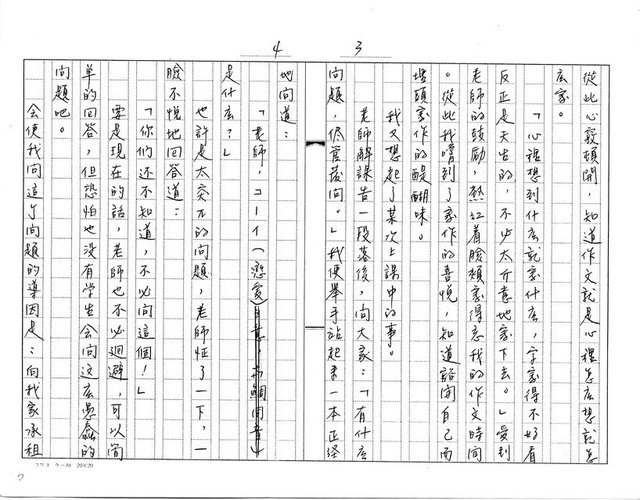 4 3
從此心竅頓開，知道作文就是心裡怎么想就怎
么寫。
「心裡想到什么就寫什么，字寫得不好看
反正是天生的，不必太介意地寫下去。」受到
老師的鼓勵，熱紅着臉頰寫得忘我的作文時間
。從此我嚐到了寫作的喜悅，知道諮問自己而
埋頭寫作的醍醐味。
我又想起了某次上課中的事。
老師解課告一段落後，向大家：「有什么
問題，侭管發問。」我便舉手站起來一本正经
地问道：
「老師，コーイ（戀愛）
是什么？」
也許是太突兀的问題，老師怔了一下，一
臉不悅地回答道：
「你们还不知道，不必问這個！」
要是現在的話，老師也不必迴避，可以简
单的回答，但恐怕也没有学生会问这么愚蠢的
问題吧。
会使我问這个问題的導因是：向我家承租
コクヨ ケー10 20×20